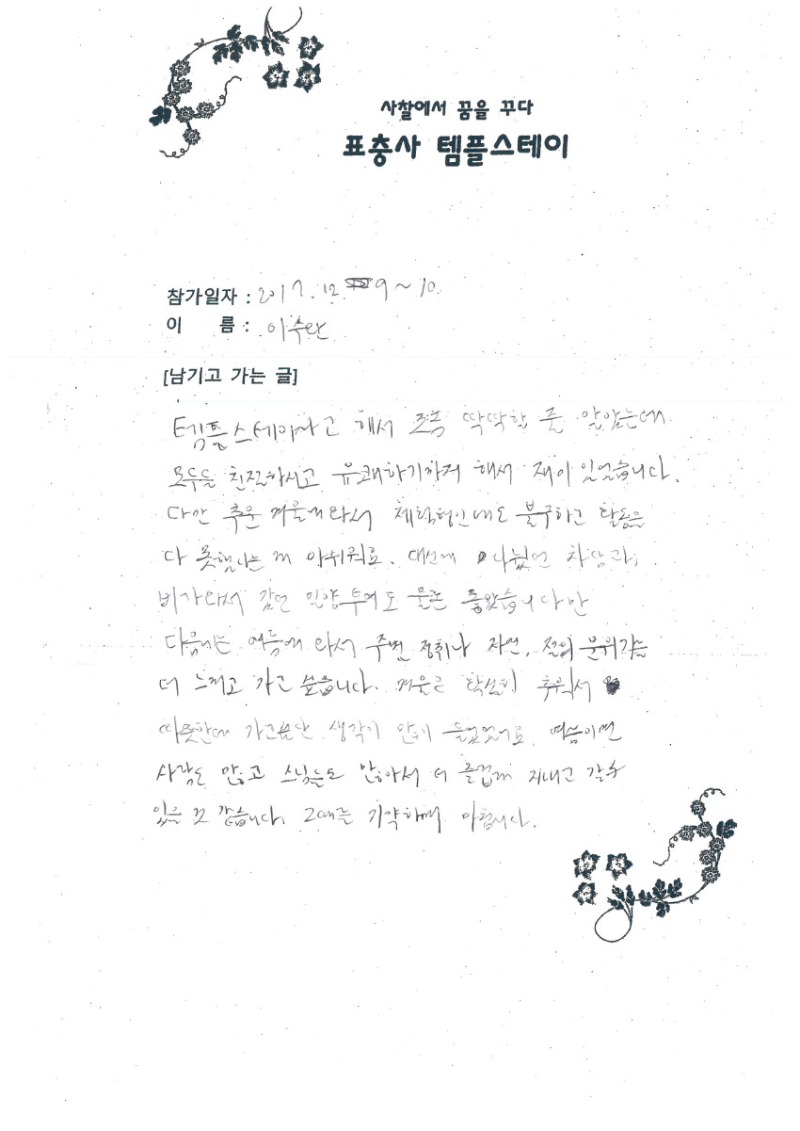 사찰에서 꿈을 꾸다
표충사 템플스테이
참가일자 : 2017. 12. 9 ~ 10.
이 름 : 이수란
[남기고 가는 글]
템플스테이라고 해서 조금 딱딱할 줄 알았는데
모두들 친절하시고 유쾌하기까지 해서 재미있었습니다.
다만 추운 겨울에 와서 체험형인데도 불구하고 활동을
다 못했다는 게 아쉬워요. 대신에 나눴던 차담과,
비가 와서 갔던 밀양 투어도 물론 좋았습니다만
다음에는 여름에 와서 주변 정취나 자연, 절의 분위기를
더 느끼고 가고 싶습니다. 겨울은 확실히 추워서
따뜻한데 가고싶단 생각이 많이 들었었어요. 여름이면
사람도 많고 스님들도 많아서 더 즐겁게 지내고 갈 수
있을 것 같습니다. 그때를 기약하며 마칩니다.